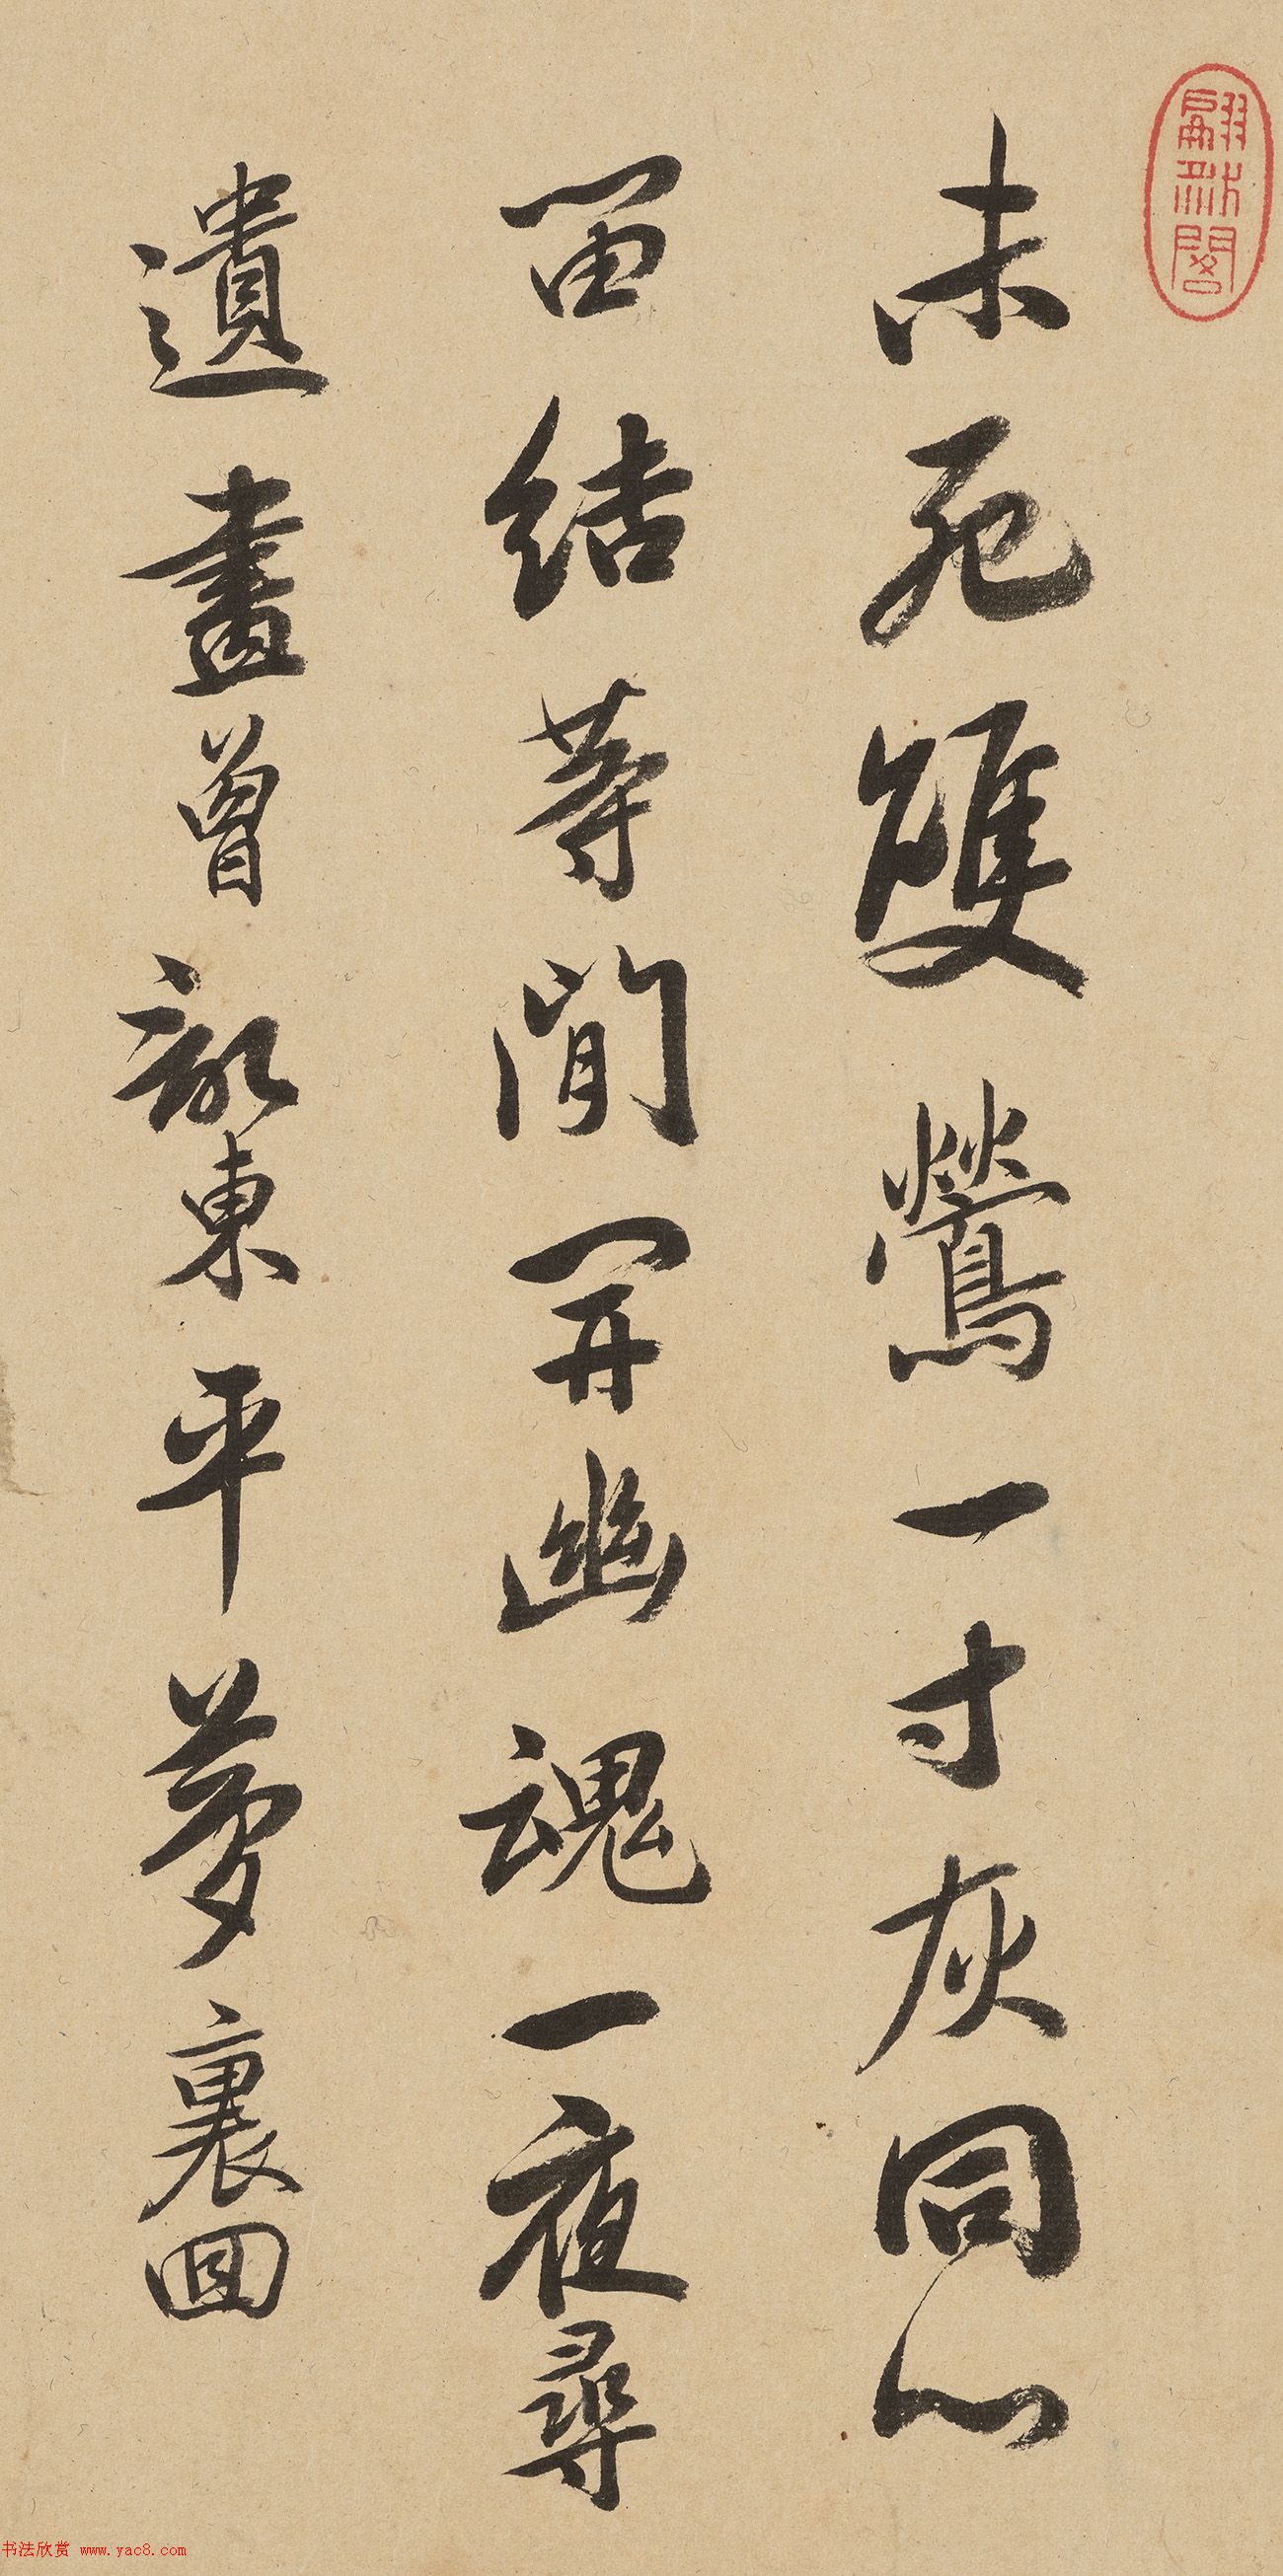 未死雙鶯一寸灰同心
留結等閒開幽魂一夜尋
遺畫曾記東平夢裏回
书法欣赏 www.yac8.com